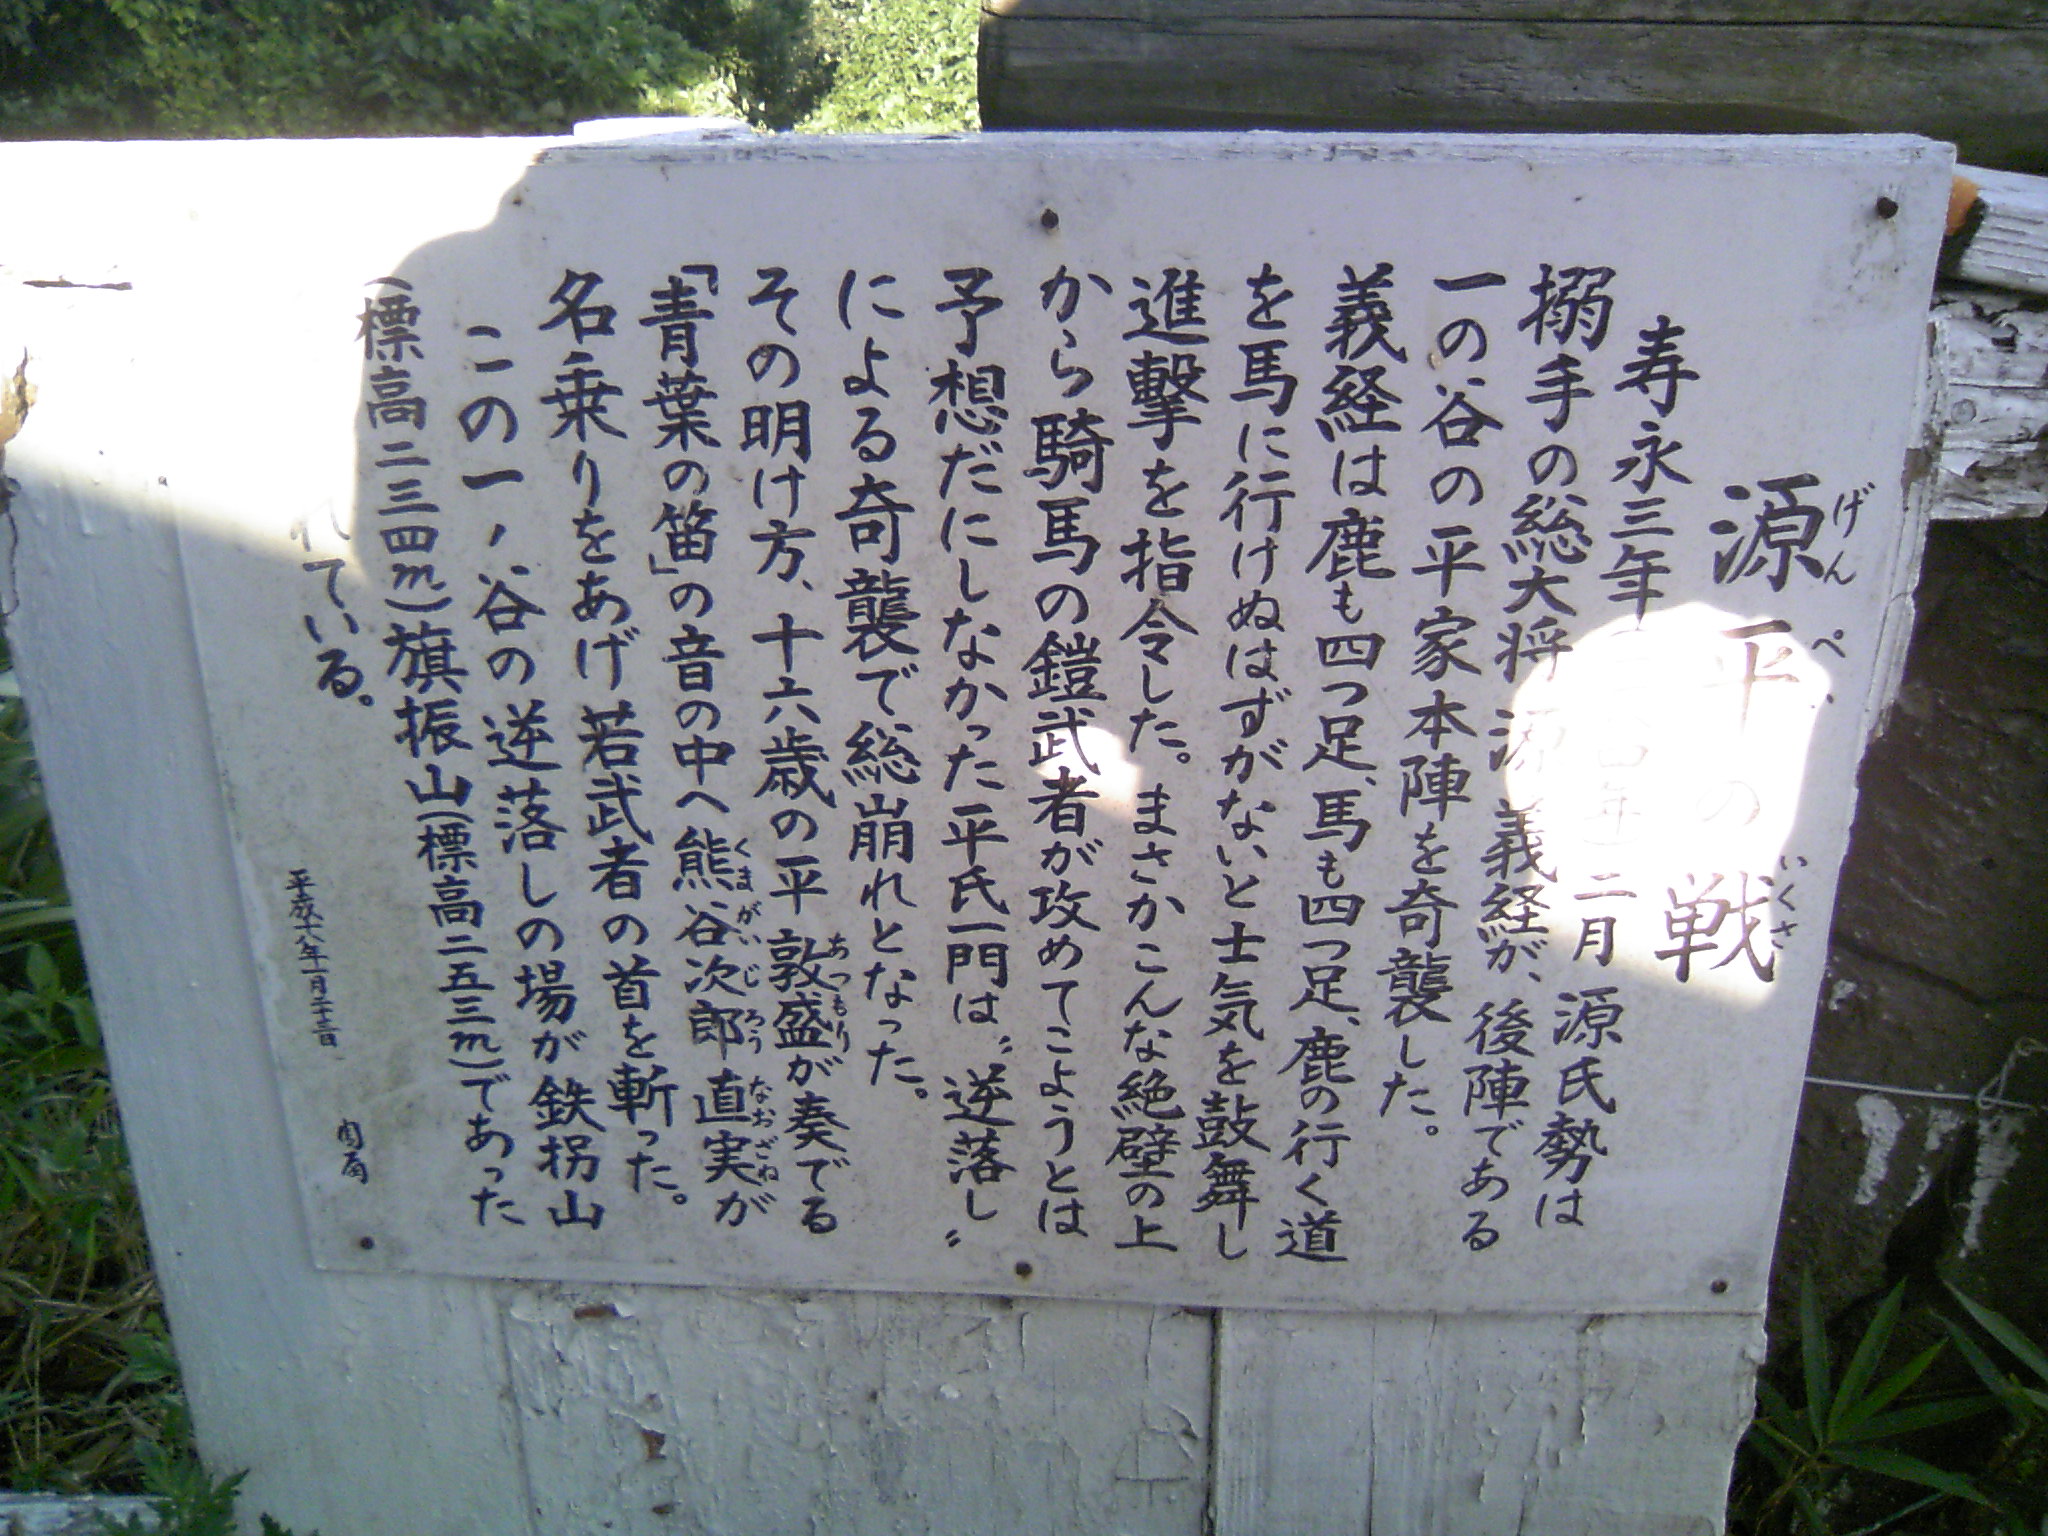 源平の戦
げん ぺい いくさ
寿永三年(一一八四年)二月 源氏勢は
搦手の総大将 源 義経が、後陣である
一の谷の平家本陣を奇襲した。
義経は鹿も四つ足、馬も四つ足、鹿の行く道
を馬に行けぬはずがないと士気を鼓舞し
進撃を指令した。まさかこんな絶壁の上
から騎馬の鎧武者が攻めてこようとは
予想だにしなかった平氏一門は〝逆落し〟
による奇襲で総崩れとなった。
その明け方、十六歳の平 敦盛が奏でる
あつもり
「青葉の笛」の音の中へ熊谷次郎直実が
くまがい じろう なおざね
名乗りをあげ若武者の首を斬った。
この一ノ谷の逆落しの場が鉄拐山
(標高二三四m)旗振山(標高二五三m)であった
れている。
平成十八年一月二十三日